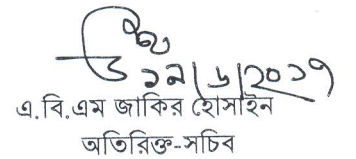 ১৯/৬/২০১৭
এ.বি.এম জাকির হোসাইন
অতিরিক্ত-সচিব